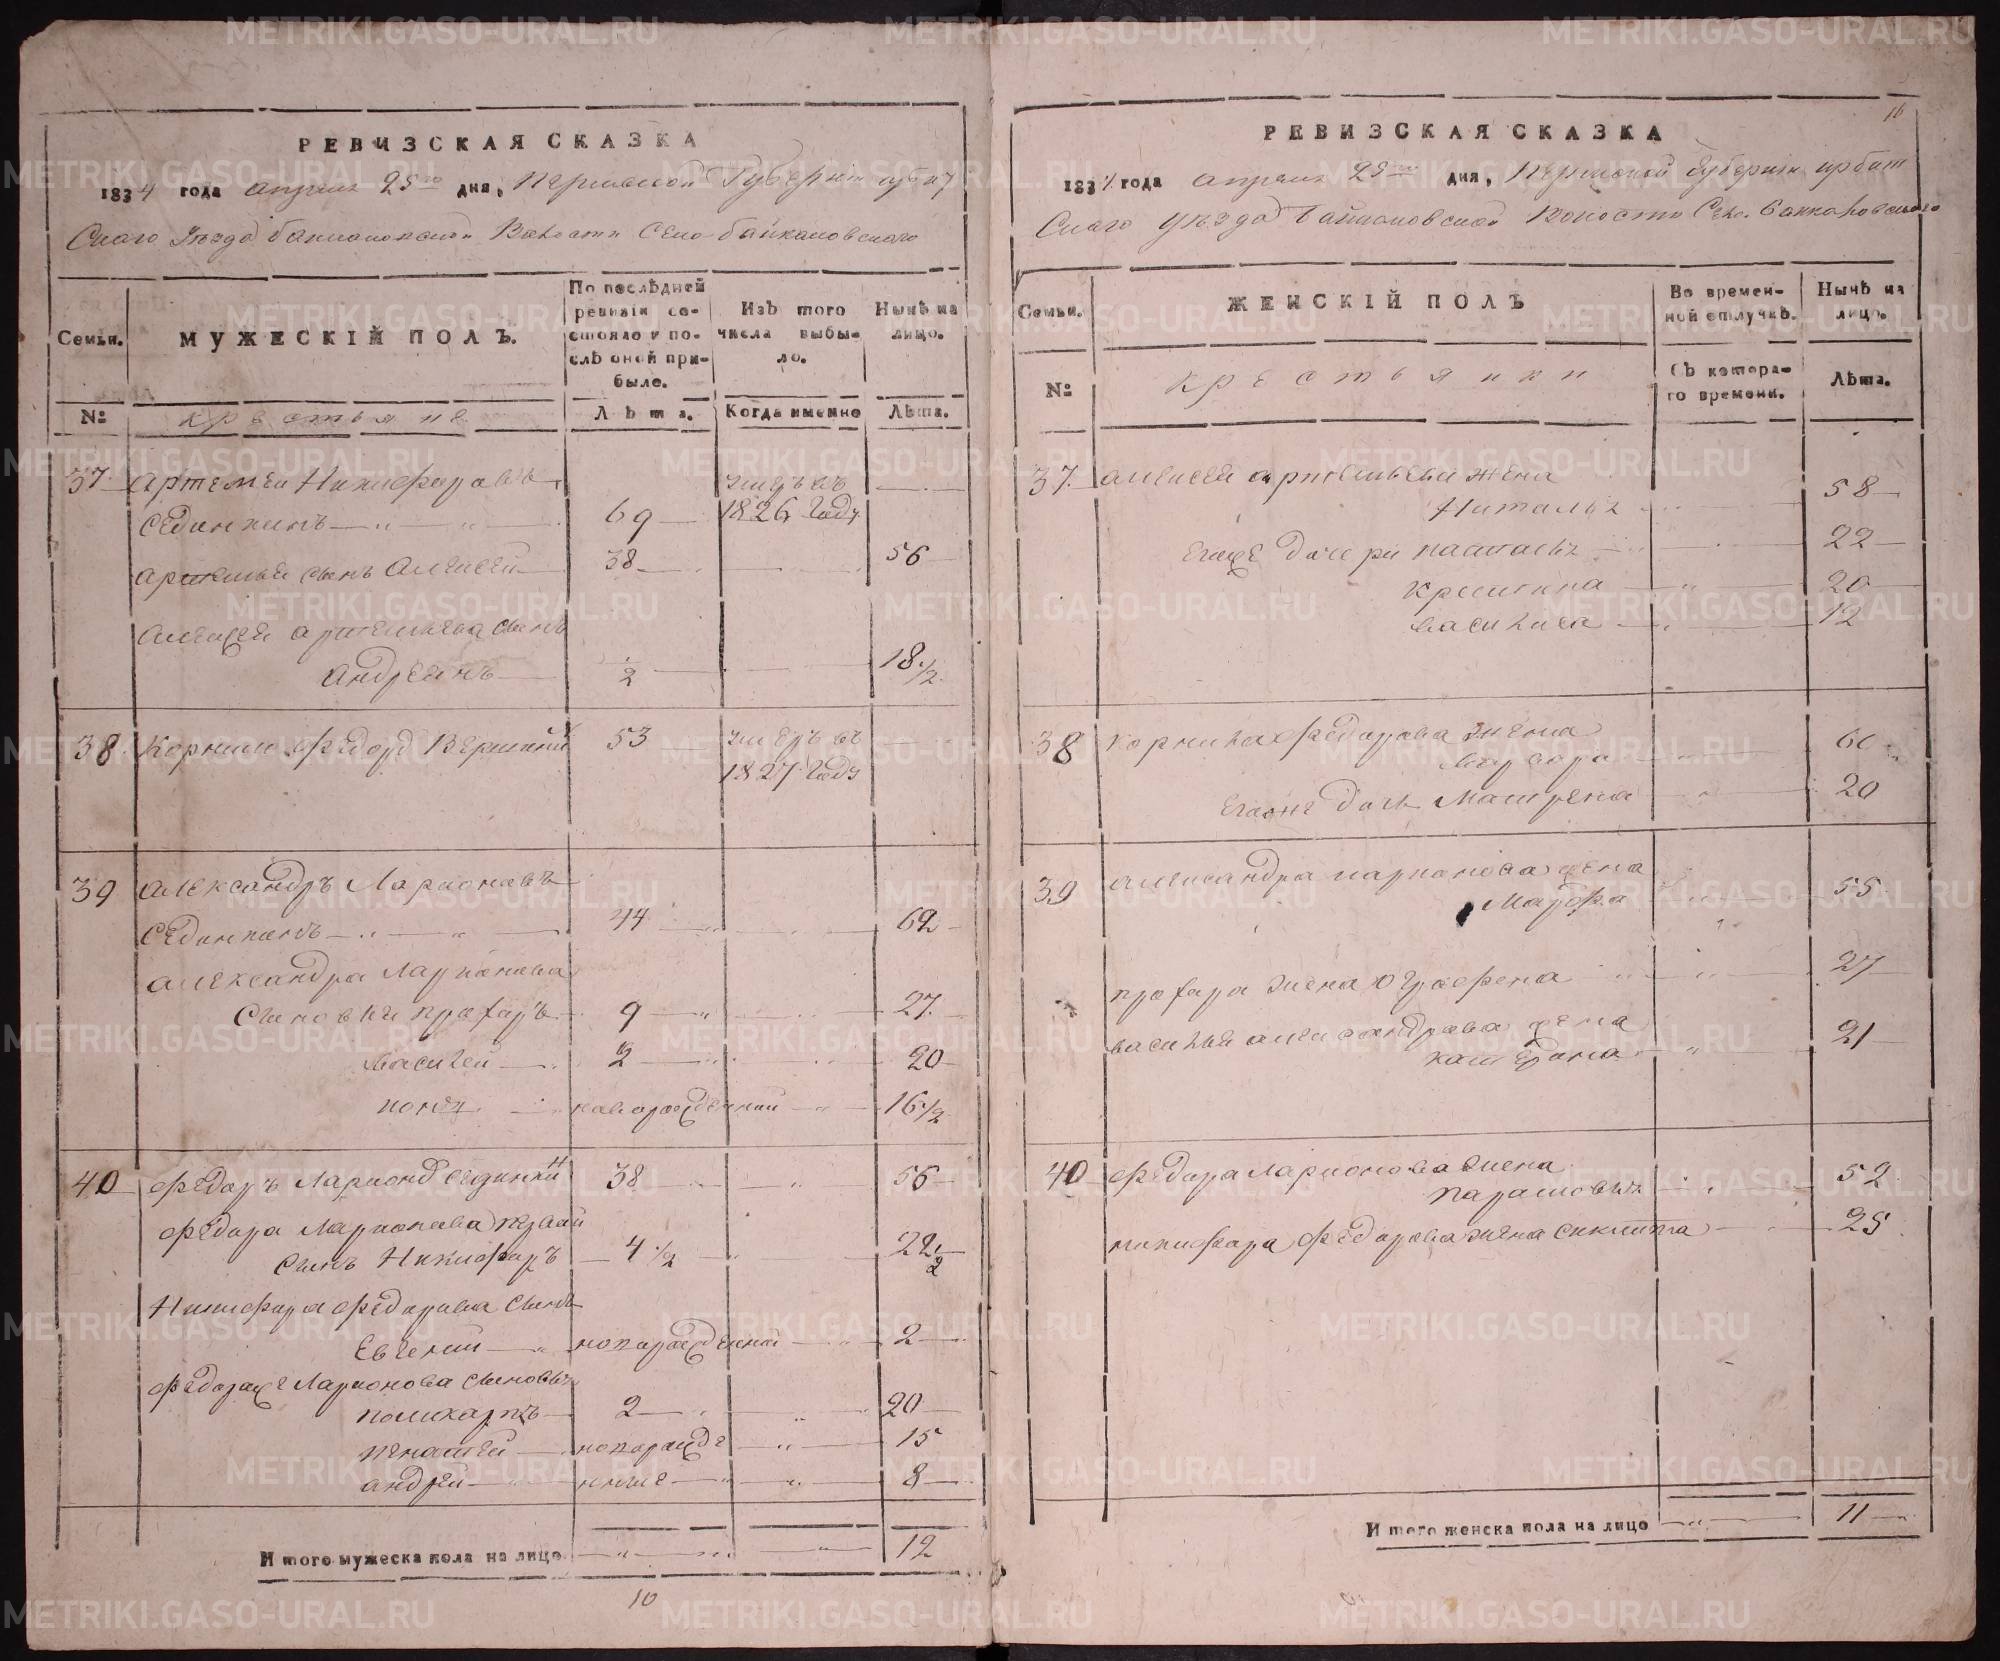 РЕВИЗСКАЯ СКАЗКА
1834 года апреля 25го дня, Пермской Губернiи ирбит
Скаго Уезда байкаловской Валости Села байкаловскаго
Семьи.
МУЖЕСКІЙ ПОЛЪ.
По послѣдней ревизіи состояло и послѣ оной прибыло.
Изъ того числа выбыло.
Нынѣ на лицо.
№
крестьяне
Лѣта.
Когда именно
Лѣта.
37. Артемеи Никифоровъ умеръ въ
Сединкинъ 69 1826 Году
Артемья сынъ Алексей 38 56
Алексея артемьева сынъ
Андреянъ 1/2 18 1/2
38 Корнило Федоро 53 умеръ въ
1827 Году
39 Александръ Ларионовъ
Сединкинъ 44 62
Александра Ларионова
Сыновья прохоръ 9 27
Василей 2 20
новорожденной 16 1/2
40 Федоръ Ларионо Сединкин 38 56
Федора Ларионова первай
Сынъ Никифоръ 4 1/2 22 1/2
Никифора Федорова Сынъ
Евгений новорожденной 2
Федора же Ларионова Сыновья
поликарпъ 2 20
новорожде 15
андрей нные 8
И того мужеска пола на лицо 12
10
16
РЕВИЗСКАЯ СКАЗКА
1834 года апреля 25го дня, Пермской Губернiи ирбит
Скаго Уезда байкаловской Волости Села байкаловскаго
Семьи.
ЖЕНСКІЙ ПОЛЪ
Во временной отлучкѣ.
Нынѣ на лицо.
№
крестьянки
Съ котораго времени.
Лѣта.
37. алексея артемьева жена
Наталья 58
Егоже дочери 22
Крестина 20
василиса 12
38 Корнила федорова жена
варвара 60
Егоже дочь Матрена 20
39 александра ларионова жена
Марфа 55
прохора жена ографена 27
василья александрова жена
катерина 21
40 Федора Ларионова жена
парасковья 52
никифора федорова жена 25
И того женска пола на лицо 11
METRIKI.GASO-URAL.RU